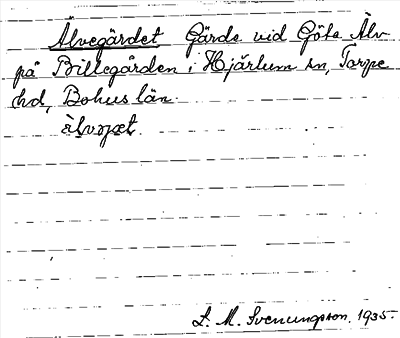 Älvegärdet Gärde vid Göta Älv
på Billegården i Hjärtum sn, Torpe
hd, Bohus län.
S. M. Svenungsson. 1935.